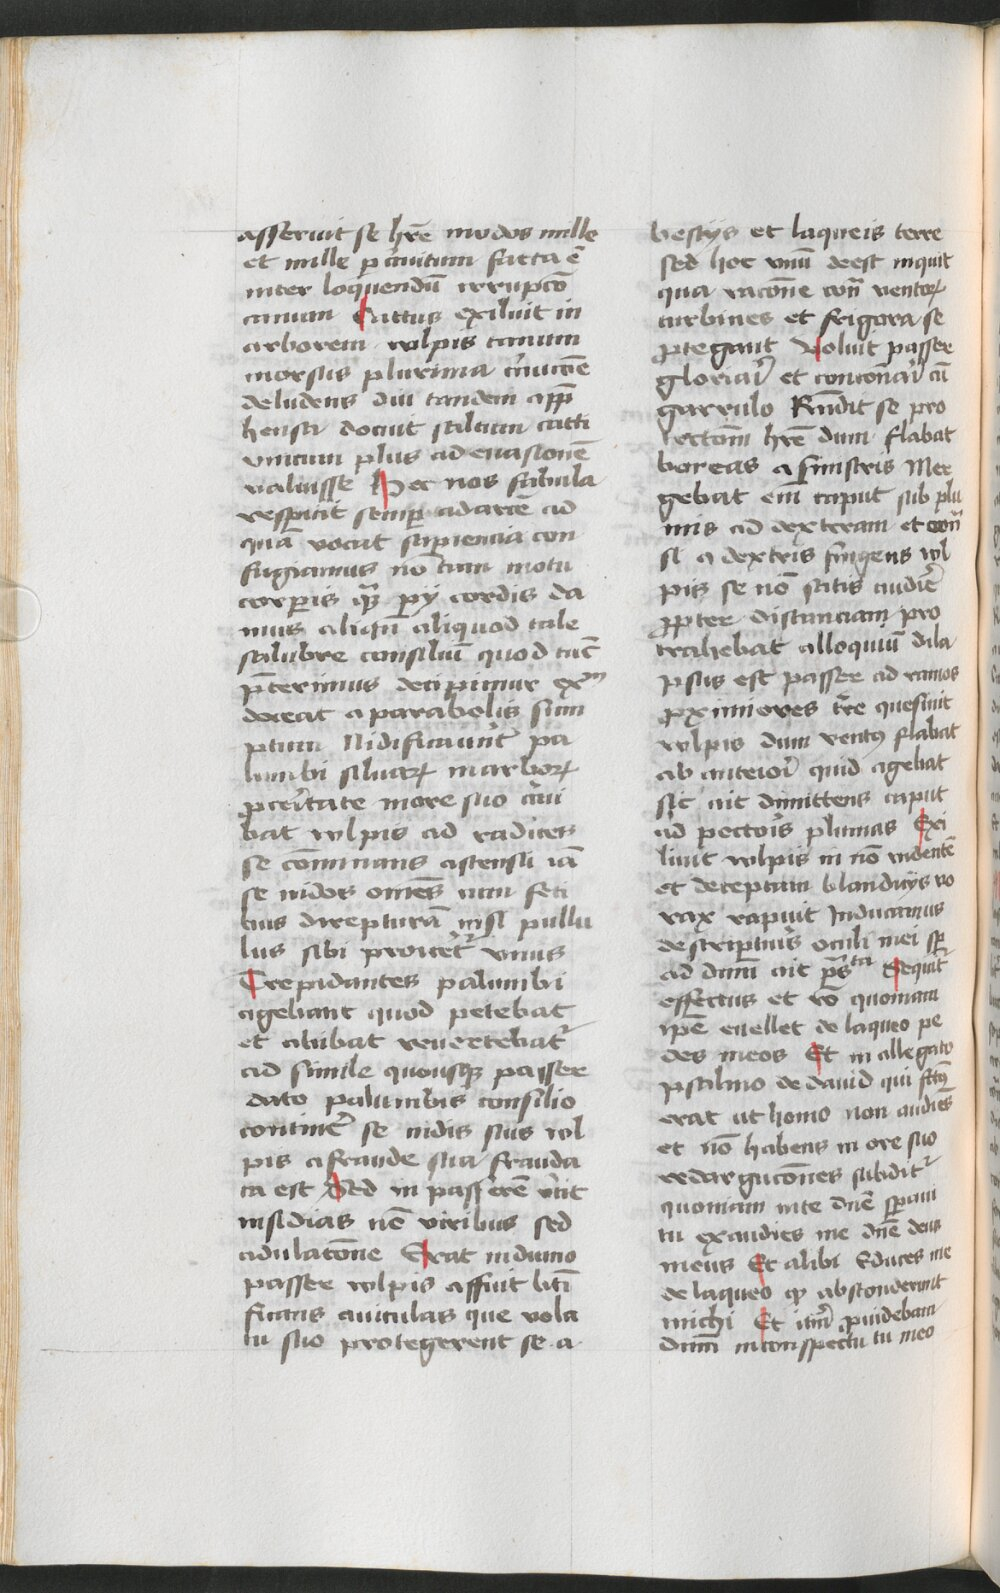 asseruit se hr̄e modos mille
et mille facta ē
inter loquendū irrupcō
canum Cattus exiluit in
arborem vulpis canum
morsus plurima
deludens diu tandem app̄
hensa docuit saltum catti
vnicum plus ad euasionē
valuisse Hec nos fabula
respicit semp ad arcē ad
quā vocat sapiencia con
fugiamus nō tam motu
corporis qz pij cordis da
mus aliqn̄ aliquod tale
salubre consiliū quod tūc
p̄terimus decipimur exm
doceat a parabolis sum
ptum Nidificauert̄ pa
lumbi siluaꝝ in arboꝝ
proceritate more suo
bat vulpis ad radices
se cōminans astensu iā
se nidos omēs cum feti
bus direpturā nisi pullu
lus sibi proicet̄ vnus
Trepidantes palumbi
agebant quod petebat
et abibat reuertebat̄
ad simile quousqz passer
dato palumbis consilio
continēr se nidis suis vul
pis a fraude sua frauda
ta est Sed in passerem v̄tit
insidias nō viribus sed
adulacōne Erat in dumo
passer vulpis affuit
ficans auiculas que vola
tu suo protegerent se a
bestijs et laqueis terre
sed hoc vnū deest inquit
qua racōne con̄ ventoꝝ
turbines et frigora se
ꝓtegant Voluit passer
gloriar̄ et concōnar̄ cū
garrulo Rn̄dit se pro
tectom̄ hr̄e dum flabat
boreas a sinistris Mer
gebat em̄ caput sub plu
mis ad dexteram et con̄
si a dextris fingens vul
pis se nō satis audir̄e
ꝓpter distanciam pro
trahebat alloquiū dila
psus est passer ad ramos
ꝓximiores tr̄e quesiuit
vulpis dum ventꝰ flabat
ab anterior̄ quid agebat
sic ait dimittens caput
ad pectoris plumas Exi
liuit vulpis in nō vidente
et deceptam blandicijs vo
rax rapuit Inducamus
descripturis oculi mei sp̄
ad dnm̄ ait ps̄ta Sequit̄
effectus et rō quoniam
ipē euellet de laqueo pe
des meos Et in allegato
psalmo de dauid qui fctꝰ
erat ut homo non audies
et nō habens in ore suo
redargucōnes subdit̄
quoniam in te dnē speraui
tu exaudies me dnē deus
meus Et alibi Educes me
de laqueo q̄ absconderunt
michi Et itm̄ ꝓuidebam
dnm̄ in conspectu tu meo